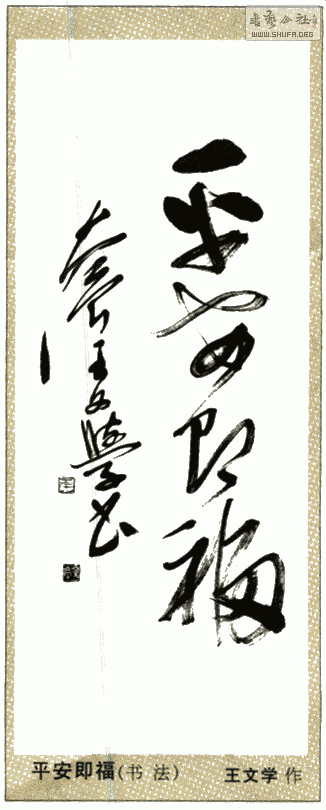 书艺公社
WWW.SHUFA.ORG
平安即福
王文学书
平安即福(书 法)
王文学 作